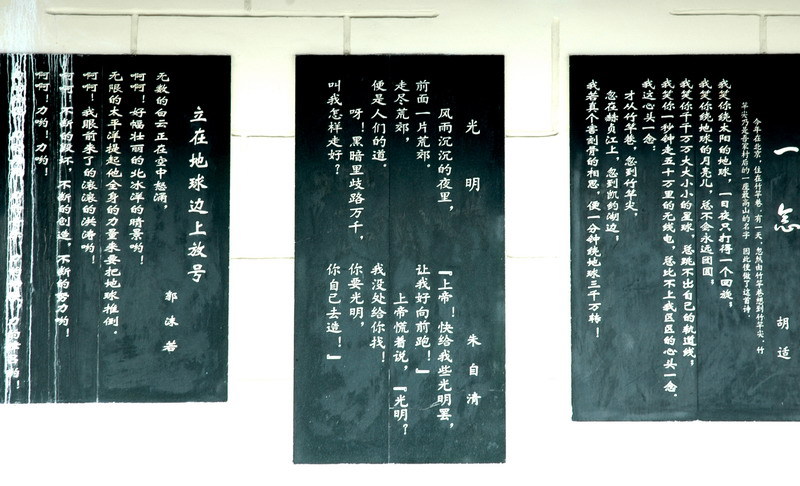 一念
胡适
今年在北京，住在竹竿巷。有一天，忽然由竹竿巷想到竹竿尖、竹
竿尖乃是吾家村后的一座最高山的名字，因此便做了这首诗。
我笑你绕太阳的地球，一日夜只打得一个回旋；
我笑你绕地球的月亮儿，总不会永远团圆；
我笑你千千万万大大小小的星球，总跳不出自己的轨道线；
我笑你一秒钟走五十万里的无线电，总比不上我区区的心头一念。
我这心头一念，
才从竹竿巷，忽到竹竿尖，
忽在赫贞江上，忽到凯约湖边；
我若真个害刻骨的相思，便一分钟绕地球三千万转！
光明
朱自清
风雨沉沉的夜里，
前面一片荒郊。
走尽荒郊，
便是人们的道。
呀！黑暗里歧路万千，
叫我怎样走好？
『上帝！快给我些光明罢，
让我好向前跑！』
上帝慌着说，『光明？
我没处给你找！
你要光明，
你自己去造！』
立在地球边上放号
郭沫若
无数的白云正在空中怒涌，
啊啊！好幅壮丽的北冰洋的晴景哟！
无限的太平洋提起他全身的力量来要把地球推倒。
啊啊！我眼前来了的滚滚的洪涛哟！
啊啊！不断的毁坏，不断的创造，不断的努力哟！
啊啊！力哟！力哟！